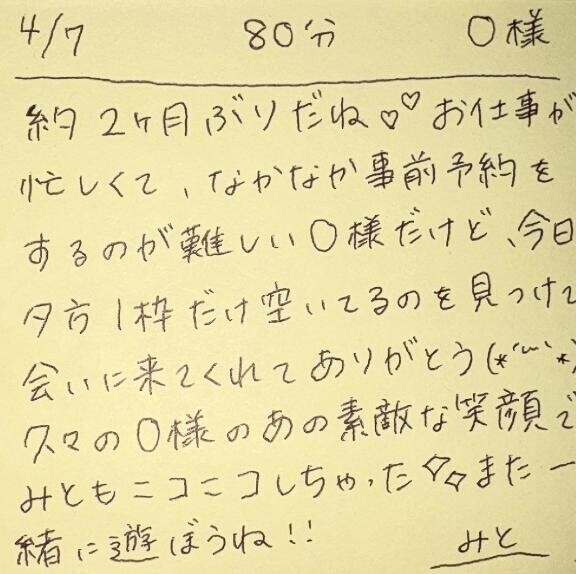 4/7 80分 〇様
約2ヶ月ぶりだね♡♡お仕事が
忙しくて、なかなか事前予約を
するのが難しい〇様だけど、今日
夕方1枠だけ空いてるのを見つけて
会いに来てくれてありがとう(*´ω`*)
久々の〇様のあの素敵な笑顔で
みともニコニコしちゃった✧✧また一
緒に遊ぼうね!!
みと